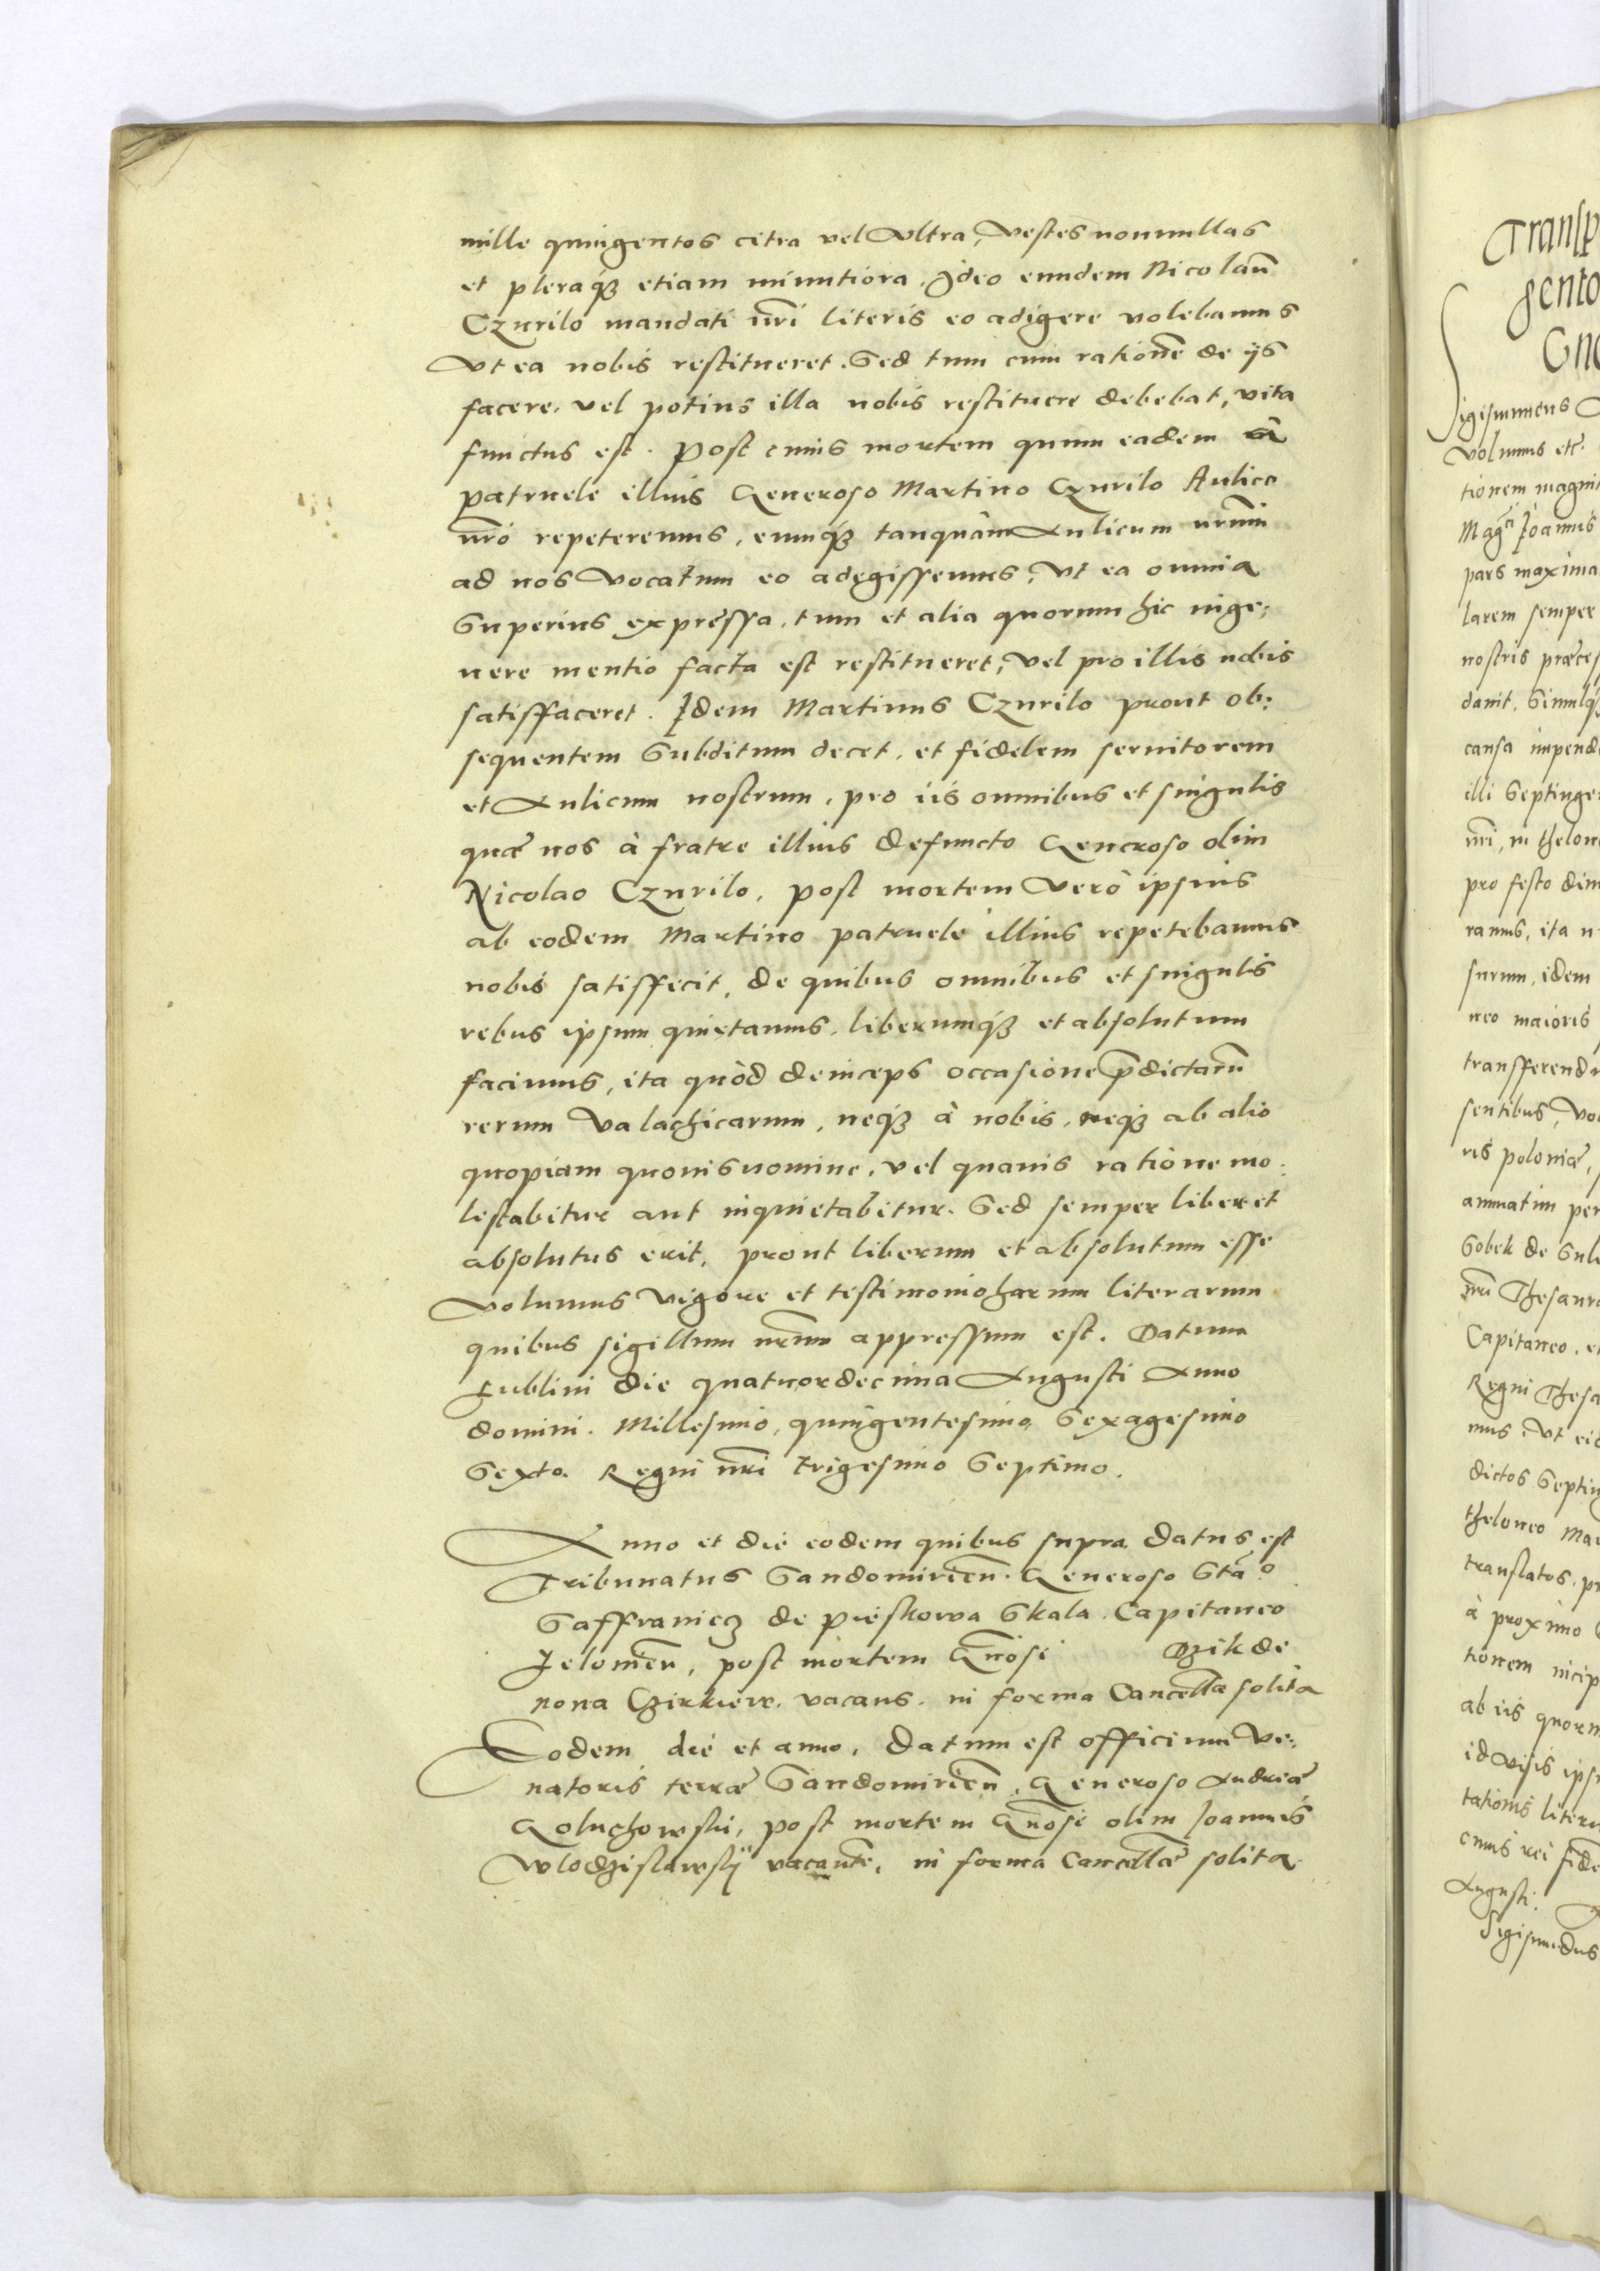 mille quingentos citra vel Vltra, Vestes nonnullas
et pleraq₃ etiam minutiora. Ideo eundem Nicolaū
Czurilo mandati nr̄i literis eo adigere volebamus
Vt ea nobis restitueret. Sed tum cum rationē de ijs
facere, vel potius illa nobis restituere debebat, vita
functus est. Post cuius mortem quum eadem à
patruele illius Generoso Martino Czurilo Aulico
nr̄o repeteremus, eumq₃ tanquàm Aulicum nr̄um
ad nos Vocatum eo adęgissemus, Vt ea omnia
Superius expressa, tum et alia quorum hic in ge:
nere mentio facta est restitueret, Vel pro illis nobis
satisffaceret. Idem Martinus Czurilo prout ob:
sequentem Subditum decet, et fidelem seruitorem
et Aulicum nostrum, pro iis omnibus et singulis
quæ nos à fratre illius defuncto Generoso olim
Nicolao Czurilo, post mortem Verò ipsius
ab eodem Martino patruele illius repetebamus
nobis satisffecit, de quibus omnibus et singulis
rebus ipsum quietamus, liberumq₃ et absolutum
facimus, ita quòd deinceps occasione p̄dictarū
rerum Valachicarum, neq₃ à nobis, neq₃ ab alio
quopiam quouis nomine, vel quauis ratione mo:
lestabitur aut inquietabitur. Sed semper liber et
absolutus erit, prout liberum et absolutum esse
Volumus Vigore et testimonio harum literarum
quibus sigillum nr̄um appressum est. Datum
Lublini die quatuordecima Augusti Anno
domini. Millesimo, quingentesimo Sexagesimo
Sexto. Regni nr̄i trigesimo Septimo.
Anno et die eodem quibus supra Datus est
Tribunatus Sandomirien̄. Generoso Stāo
Saffraniecz de pieskowa Skala Capitaneo
Lelowien̄, post mortem Gn̄osi Dzik de
nona Czirkiew, vacans. in forma Cancellæ solita
Eodem die et anno, Datum est officium Ve:
natoris terræ Sandomirien̄, Generoso Andreæ
Goluchowski, post mortem Gn̄osi olim Joannis
Wlodzislawskij vacante, in forma Cancellæ solita.
Transp
gento
Gne
Sigismundus
Volumus etc.
tionem magni
Magci Joannis
pars maxima
larem semper
nostris præces
dauit, Simulq₃
causa impend
illi Septinge
nr̄i, in thelon
pro festo diu
ramus, ita u
surum, idem
neo maioris
transfferend
sentibus, Vo
ris poloniæ,
annuatim per
Sobek de Sul
nr̄i Thesaur
Capitaneo, et
Regni Thesa
mus, Vt eid
dictos Septin
theloneo Mai
translatos, pr
à proximo
tionem incip
ab iis quorum
id Visis ips
tationis literis
cuius rei fide
Augusti.
Sigismundus